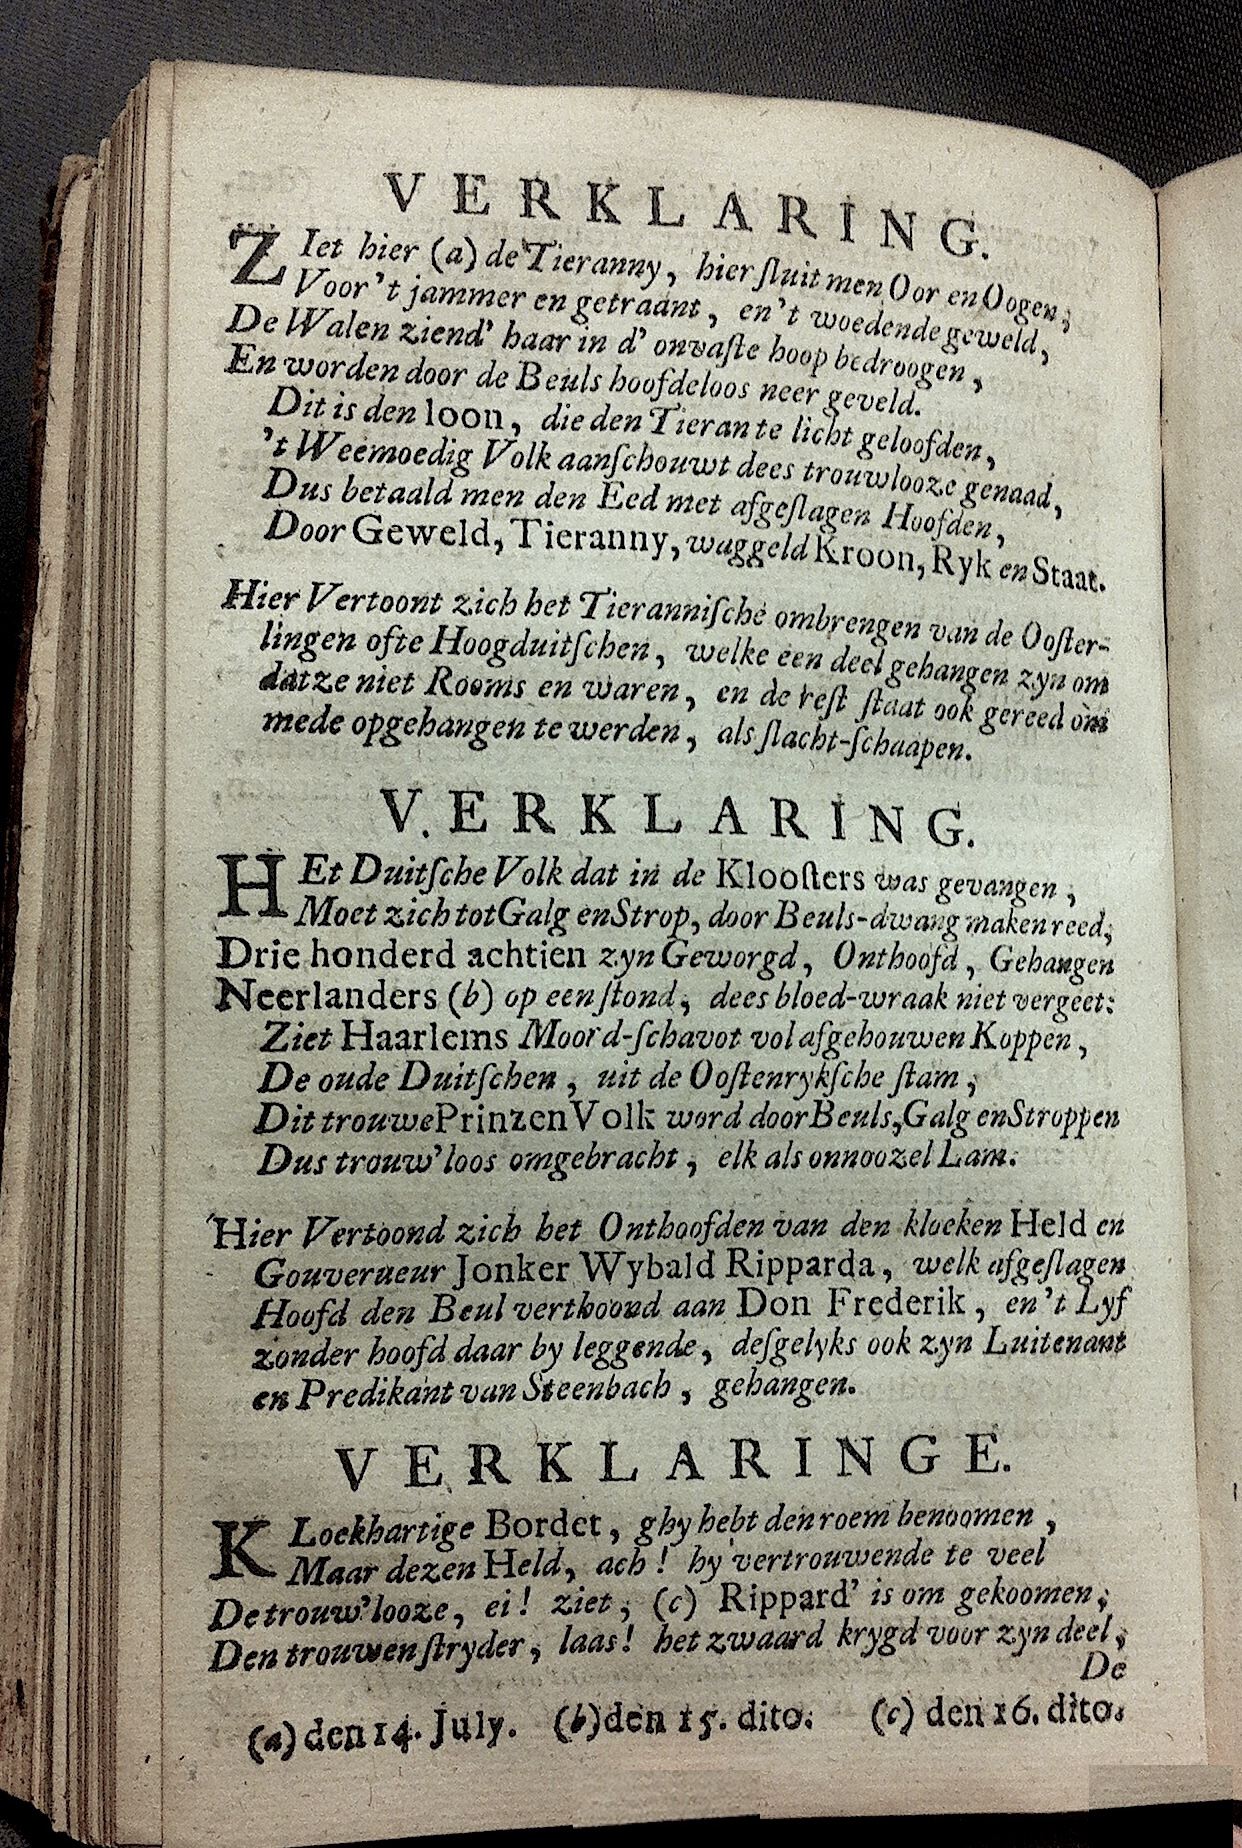 VERKLARING.
ZIet hier (a) de Tieranny, hier ſluit men Oor en Oogen,
Voor 't jammer en getraant, en 't woedende geweld,
De Walen ziend' haar in d' onvaſte hoop bedroogen,
En worden door de Beuls hoofdeloos neer geveld.
Dit is den loon, die den Tierante licht geloofden,
't Weemoedig Volk aanſchouwt dees trouwlooze genaad,
Dus betaald men den Eed met afgeſlagen Hoofden,
Door Geweld, Tieranny, waggeld Kroon, Ryk en Staat.
Hier Vertoont zich het Tieranniſche ombrengen van de Ooſter-
lingen ofte Hoogduitſchen, welke een deel gehangen zyn om
datze niet Rooms en waren, en de reſt ſtaat ook gereed om
mede opgehangen te werden, als ſlacht-ſchaapen.
VERKLARING.
HEt Duitſche Volk dat in de Klooſters was gevangen,
Moet zich tot Galg en Strop, door Beuls-dwang maken reed;
Drie honderd achtien zyn Geworgd, Onthoofd, Gehangen
Neerlanders (b) op een ſtond, dees bloed-wraak niet vergeet:
Ziet Haarlems Moord-ſchavot vol afgehouwen Koppen,
De oude Duitſchen, uit de Ooſtenrykſche ſtam,
Dit trouwe Prinzen Volk word door Beuls, Galg en Stroppen
Dus trouw'loos omgebracht, elk als onnoozel Lam.
Hier Vertoond zich het Onthoofden van den kloeken Held en
Gouverueur Jonker Wybald Ripparda, welk afgeſlagen
Hoofd den Beul verthoond aan Don Frederik, en 't Lyf
zonder hoofd daar by leggende, deſgelyks ook zyn Luitenant
en Predikant van Steenbach, gehangen.
VERKLARINGE.
KLoekhartige Bordet, ghy hebt den roem benoomen,
Maar dezen Held, ach! hy vertrouwende te veel
De trouw'looze, ei! ziet, (c) Rippard' is om gekoomen;
Den trouwen ſtryder, laas! het zwaard krygd voor zyn deel,
De
(a) den 14. July. (b) den 15. dito. (c) den 16. dito.